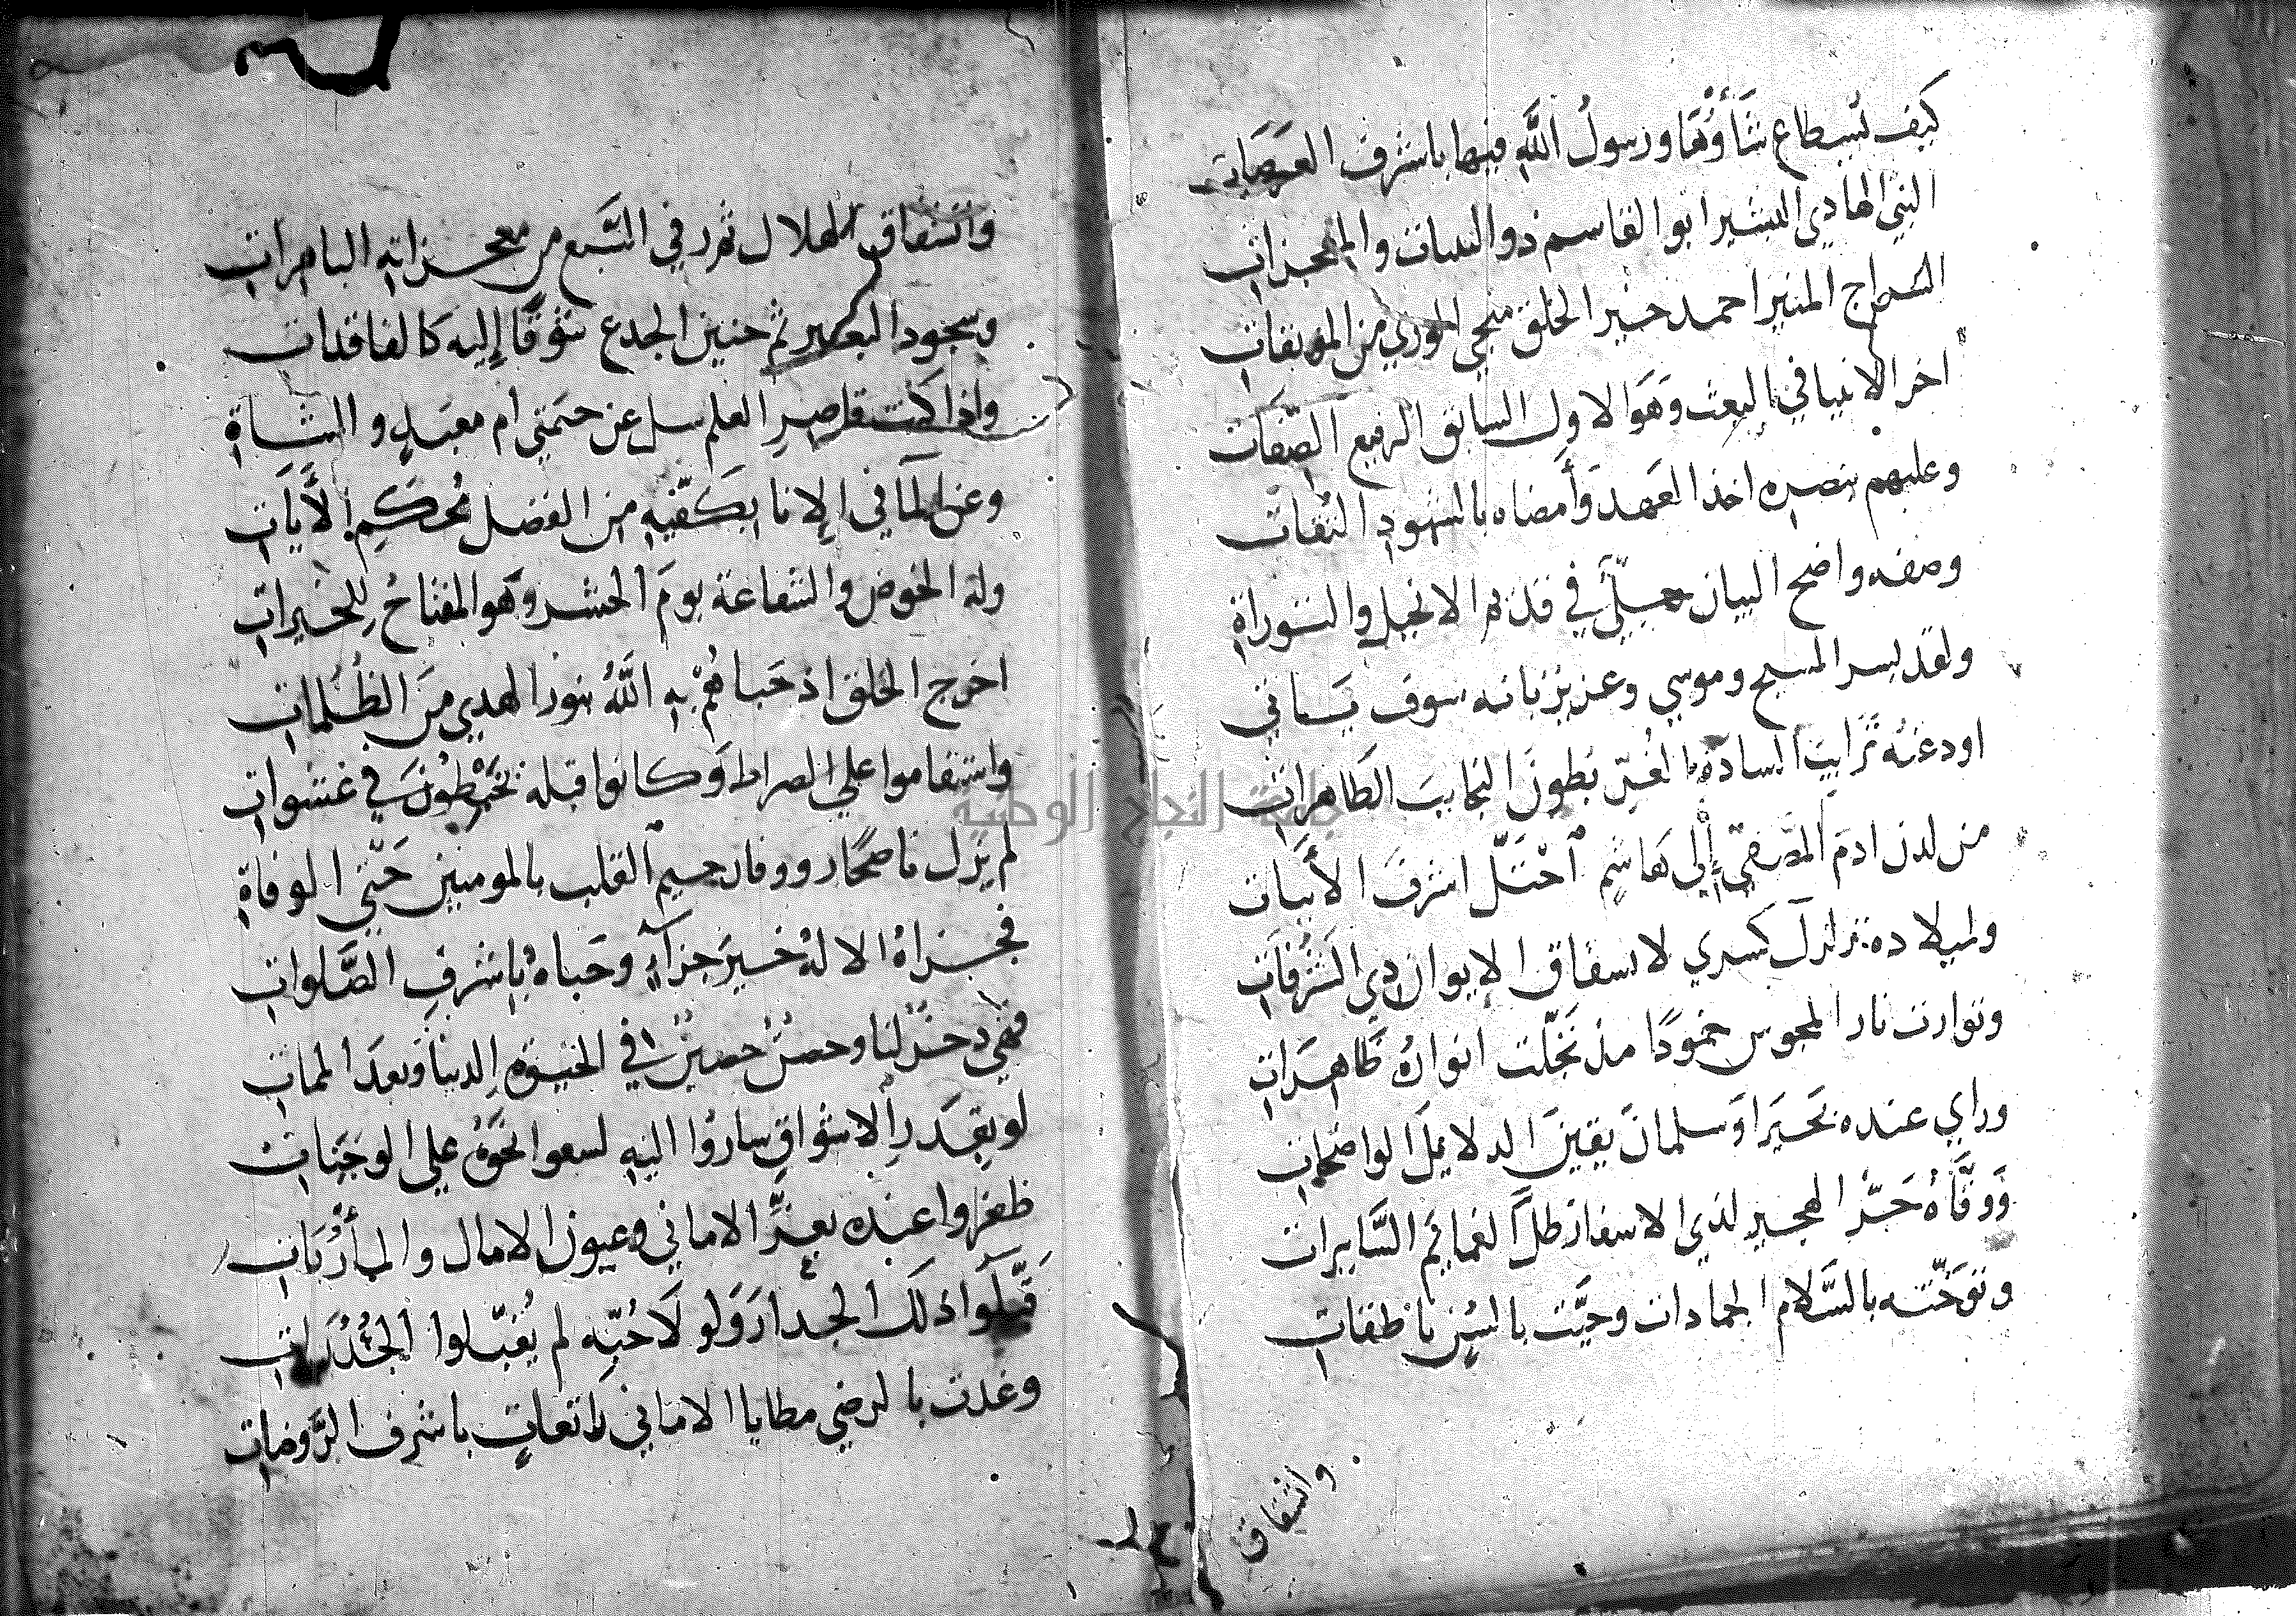 كيف تسطاع شأوها ورسول الله فيها باشرف العرصات
النبي الهادي البشير ابو القاسم ذو البينات والمعجزات
السراج المنير احمد خير الخلق منجي الوري من الموبقات
اخر الانبيا في البعث وهو الاول السابق الرفيع الصفات
وعليهم بنصره اخذ العهد وأمضاه بالشهود الثقات
وصفه واضح البيان جلي في قديم الانجيل والتوراة
ولقد بسر المسيح وموسي وعزيز بانه سوف ياتي
اودعته ترايب السادة الغر بطون النجايب الطاهرات
من لدن ادم المصفي إلي هاشم احتل اشرف الأبيات
ولميلاده تزلزل كسري لانشقاق الإيوان ذي الشرفات
وتوارت نار المجوس خمودا مذ تجلت انواره ظاهرات
وراي عنده بحيرا وسلمان يقين الدلايل الواضحات
ووقاه حر الهجير لذي الاسفار ظل الغمايم السايرات
وتوخته بالسلام الجمادات وحيت بالسن ناطقات
وانشقاق
وانشقاق الهلال ثم رد في التبع من معجزاته الباهرات
وسجود البعير ثم حنين الجدع شوقا إليه كالفاقدات
واذا كنت قاصر العلم سل عن خيمتي ام معبد والشاة
وعن الما في الإنا بكفيه من الفضل محكم الأيات
وله الحوض والشفاعة يوم الحشر وهو المفتاح للخيرات
اخرج الخلق اذ حباهم به الله بنور الهدي من الظلمات
واستقاموا علي الصراط وكانوا قبله يخبطون في غشوات
لم يزل ناصحا رووفا رحيم القلب بالمومنين حتي الوفاة
فجزاه الاله خير جزاء وحباه باشرف الصلوات
فهي ذخر لنا وحصن حصين في الحيوة الدنيا وبعد الممات
لو بقدر الاشواق ساروا اليه لسعوا نحوه علي الوجنات
ظفروا عنده بعز الاماني وعيون الامال والمأربات
قبلوا ذلك الجدار ولو لا حبه لم يقبلوا الجدرات
وغدت بالرضي مطايا الاماني راتعات باشرف الروضات
جامعة النجاح الوطنية